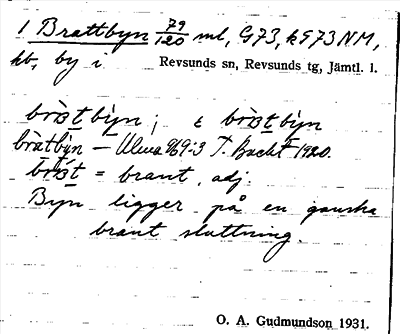 1 Brattbyn 79/120 ml, G73, k 973 NM,
hb, by i Revsunds sn, Revsunds tg, Jämtl. l.
brɑ̀tbỳn; ɛ brɑ̀tbỳn
bràtbỳn – Ulma 969:3 T. Bucht 1920.
= brant, adj.
Byn ligger på en ganska
brant sluttning.
O. A. Gudmundson 1931.